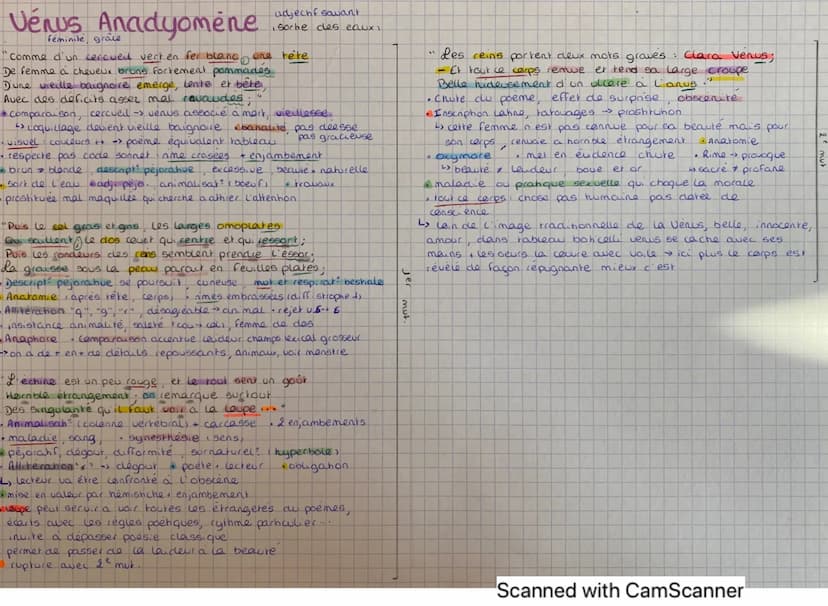 Vénus Anadyomène
adjectif savant
(sortie des eaux)
féminité, grâce
"Comme d'un cercueil vert en fer blanc, une tête
De femme à cheveux bruns fortement pommadés
D'une vieille baignoire émerge, lente et bête,
Avec des déficits assez mal ravaudés;"
comparaison, cercueil → vénus associé à mort, vieillesse
↳ coquillage devient vieille baignoire banalité, pas déesse
pas gracieuse
visuel: couleurs ++ → poème équivalent tableau
respecte pas code sonnet: rime croisées + enjambement
brun ≠ blonde descript° péjorative, excessive beauté ≠ naturelle
sort de l'eau adj péjo, animalisat° (boeuf) + travaux
prostituée mal maquillée qui cherche à attirer l'attention
"Puis le col gras et gris, les larges omoplates
Qui saillent; le dos court qui rentre et qui ressort;
Puis les rondeurs des reins semblent prendre l'essor;
La graisse sous la peau paraît en feuilles plates;
Descript° péjorative se poursuit, curieuse, mvt et respirat° bestiale
Anatomie (après tête, corps) • rimes embrassées (diff. strophe 1)
Allitération "q", "g", "r", désagréable → animal • rejet v5→6
insistance animalité, saleté (cou → col), femme de dos
Anaphore • comparaison accentue laideur champs lexical grosseur
→ on a de + en + de détails repoussants, animaux, voir monstre
"L'échine est un peu rouge, et le tout sent un goût
Horrible étrangement; on remarque surtout
Des singularités qu'il faut voir à la loupe..."
Animalisat° (colonne vertébral) + carcasse • 2 enjambements
maladie, sang, • synesthésie (sens)
péjoratif, dégout, difformité, surnaturel (hyperbole)
Allitération "r" → dégout poète + lecteur obligation
↳ lecteur va être confronté à l'obscène
mise en valeur par hémistiche + enjambement
loupe peut servir à voir toutes les étrangetés du poèmes,
écarts avec les règles poétiques, rythme particulier...
invite à dépasser poésie classique
permet de passer de la laideur à la beauté
rupture avec 2e mvt.
1er mvt.
"Les reins portent deux mots gravés: Clara Vénus;
– Et tout ce corps remue et tend sa large croupe
Belle hideusement d'un ulcère à l'anus."
Chute du poème, effet de surprise, obscénité
Inscription latine, tatouages → prostitution
↳ cette femme n'est pas connue pour sa beauté mais pour
son corps, renvoie à horrible étrangement Anatomie
oxymore • met en évidence chute • Rime → provoque
↳ beauté ≠ laideur boue et or ↳ sacré ≠ profane
maladie ou pratique sexuelle qui choque la morale
tout ce corps: chose pas humaine pas dotée de
conscience
↳ loin de l'image traditionnelle de la Vénus, belle, innocente,
amour, dans tableau boticelli vénus se cache avec ses
mains + les soeurs la couvre avec voile → ici plus le corps est
révélé de façon répugnante mieux c'est
2e mvt
Scanned with CamScanner